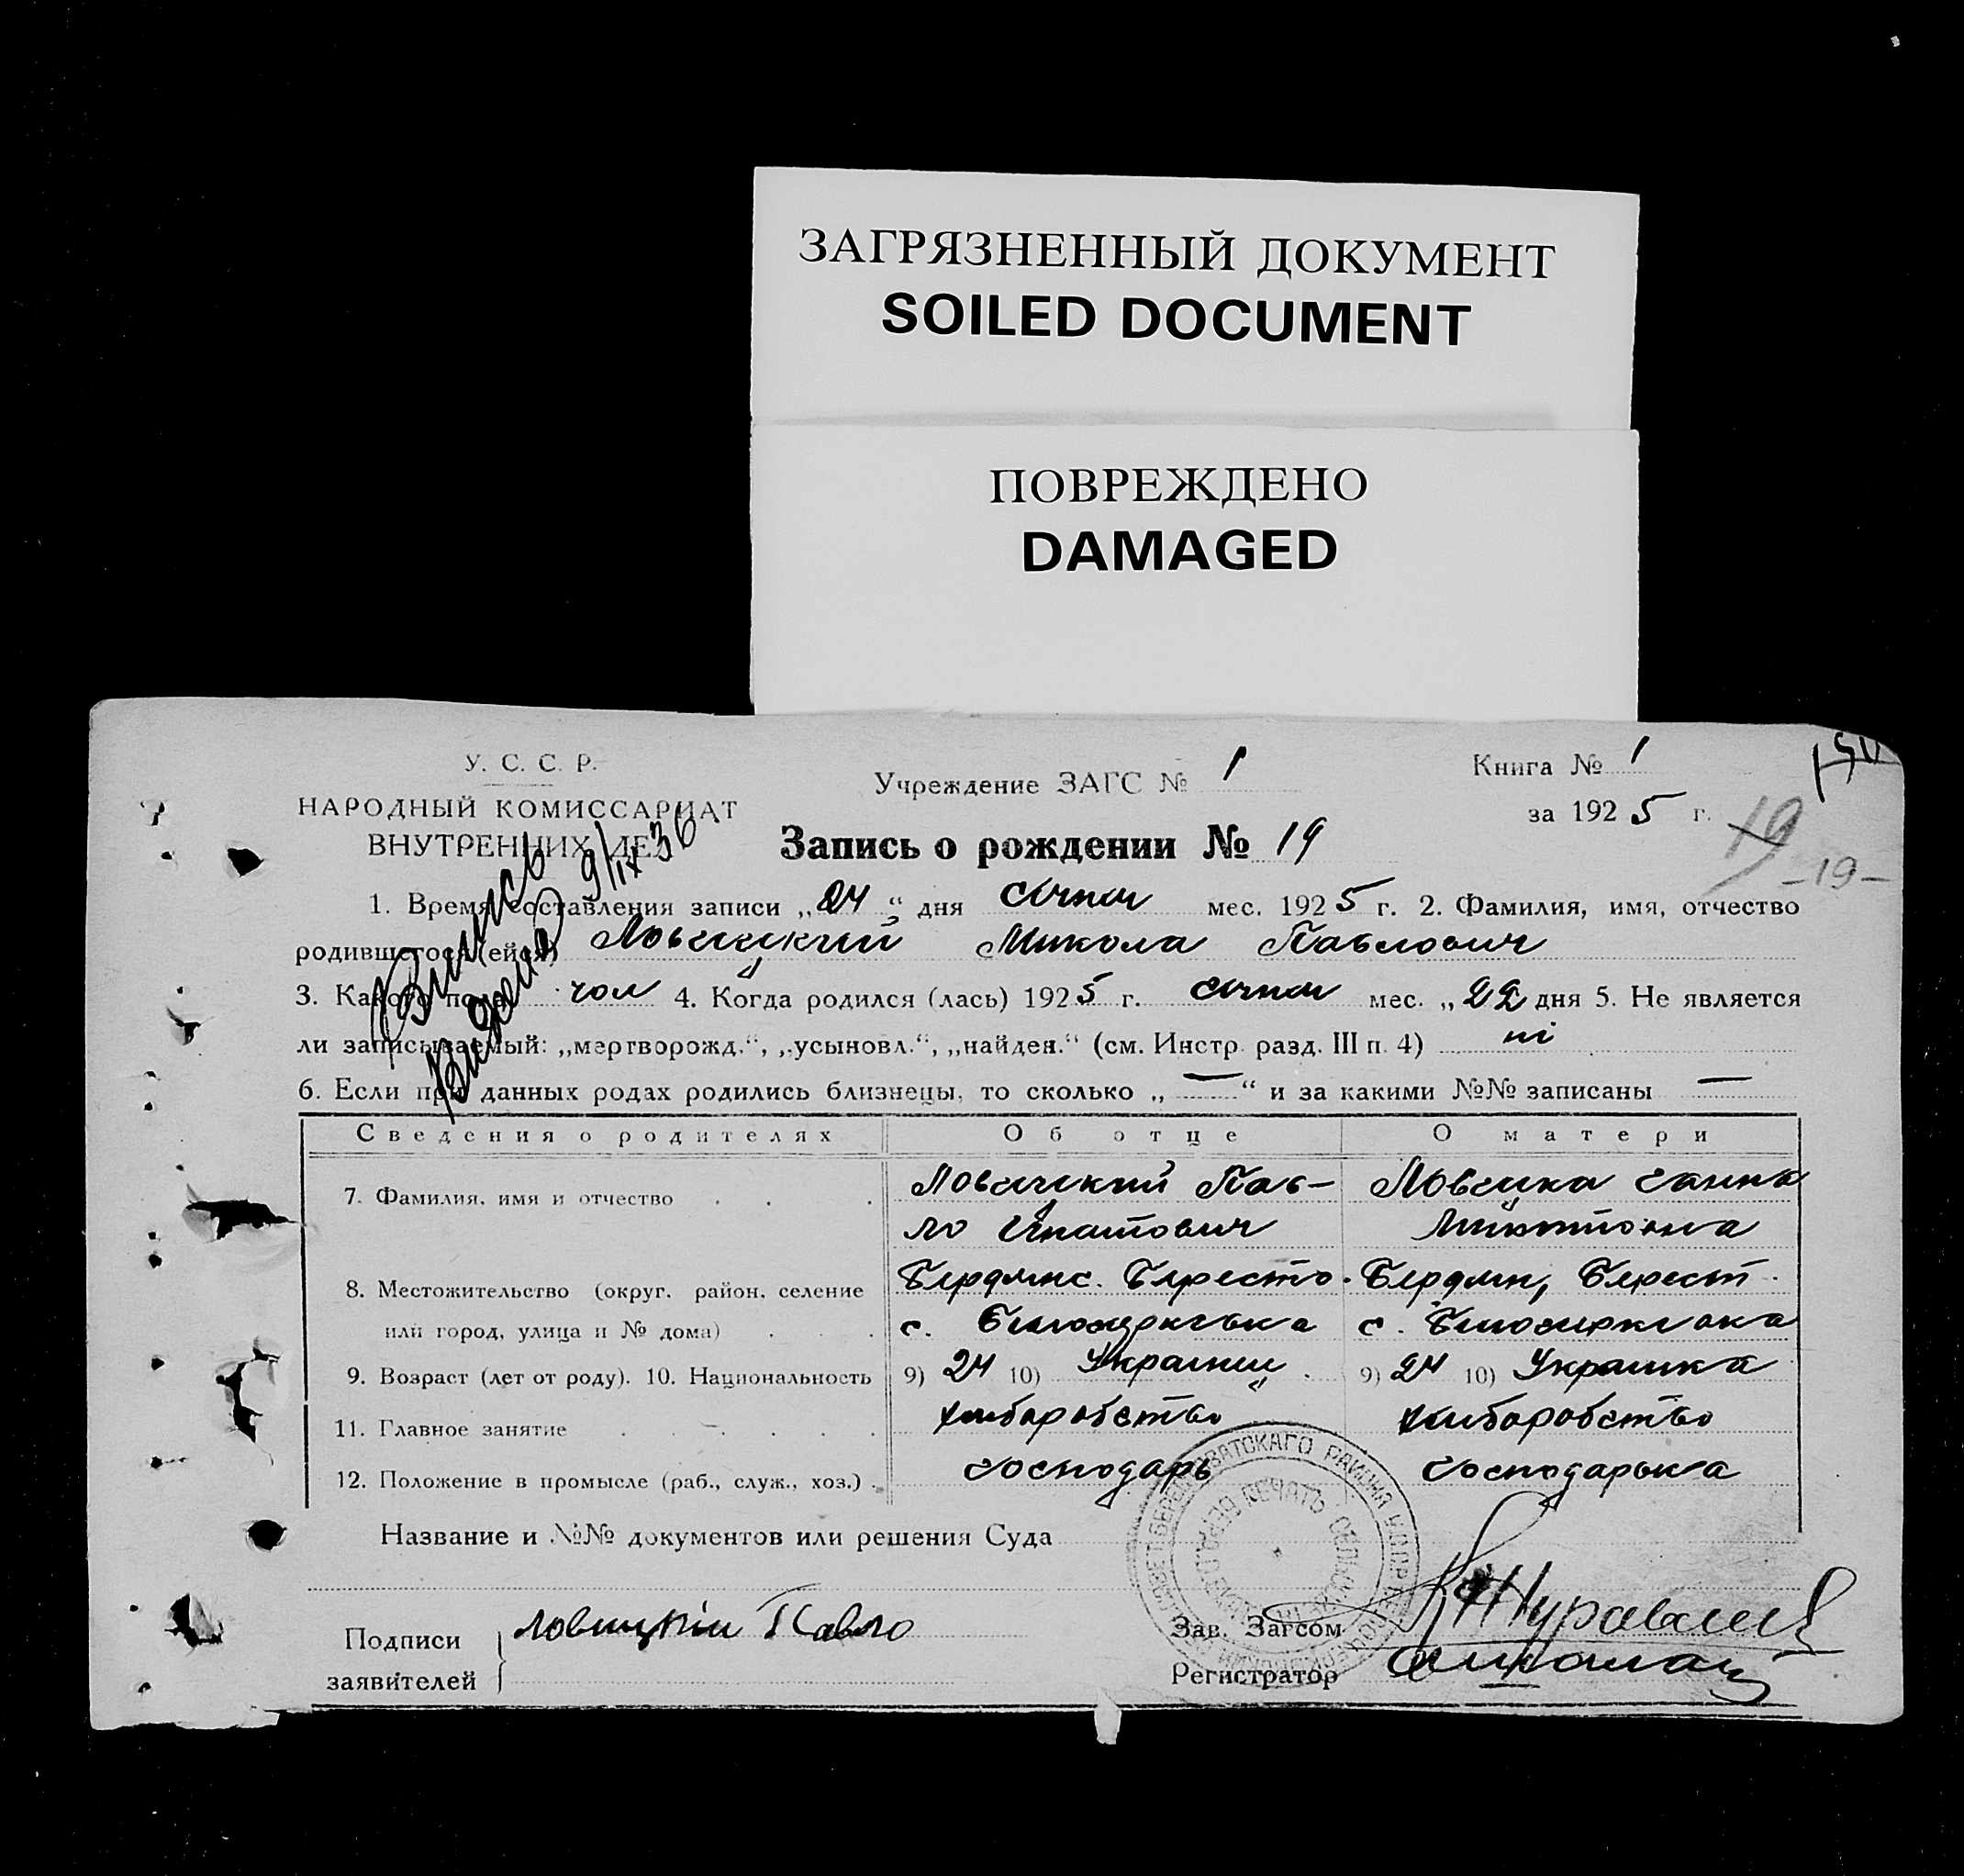 ЗАГРЯЗНЕННЫЙ ДОКУМЕНТ
SOILED DOCUMENT
ПОВРЕЖДЕНО
DAMAGED
У. С. С. Р.
НАРОДНЫЙ КОМИССАРИАТ
ВНУТРЕННИХ ДЕЛ
Учреждение ЗАГС № 1
Книга № 1
за 1925 г.
19
-19-
Запись о рождении № 19
Виписъ
Видана 9/IX 36
1. Время составления записи „24“ дня січня мес. 1925 г. 2. Фамилия, имя, отчество
родившегося (ейся) Ловицкий Микола Павлович
3. Какого пола чол 4. Когда родился (лась) 1925 г. січня мес. „22 дня 5. Не является
ли записываемый: „мертворожд.“, „усыновл.“, „найден.“ (см. Инстр. разд. III п. 4) ні
6. Если при данных родах родились близнецы, то сколько „ — “ и за какими №№ записаны —
Сведения о родителях Об отце О матери
7. Фамилия, имя и отчество Ловицкий Пав- Ловицка Ганна
ло Гнатович
8. Местожительство (округ, район, селение Бердянс. Бересто. Бердян, Берест.
или город, улица и № дома) с. Білоцерківка с. Білоцерківка
9. Возраст (лет от роду). 10. Национальность 9) 24 10) Украинец 9) 24 10) Украинка
11. Главное занятие хліборобство хліборобство
12. Положение в промысле (раб., служ., хоз.) господарь господарька
Название и №№ документов или решения Суда
Подписи
заявителей
Ловицкій Павло
Зав. Загсом
Регистратор